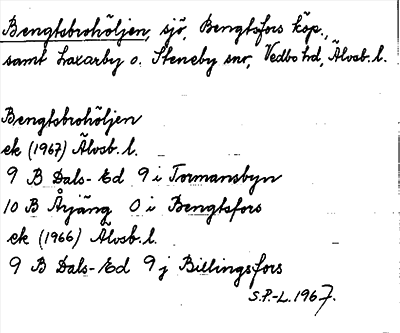 Bengtsbrohöljen, sjö, Bengtsfors köp.,
samt Laxarby o. Steneby snr, Vedbo hd, Älvsb. l.
Bengtsbrohöljen
ek (1967) Älvsb. l.
9 B Dals-Ed 9 i Tormansbyn
10 B Årjäng 0 i Bengtsfors
ek (1966) Älvsb. l.
9 B Dals-Ed 9 j Billingsfors
S.P.-L. 1967.